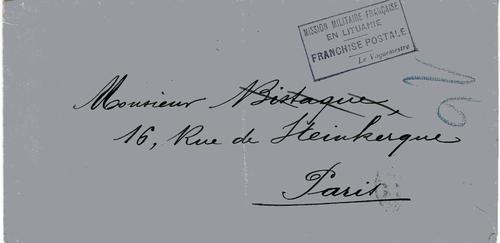 MISSION MILITAIRE FRANÇAISE
EN LITUANIE
FRANCHISE POSTALE
Le Vaguemestre
Monsieur Bistaque,
16, Rue de Steinkerque
Paris